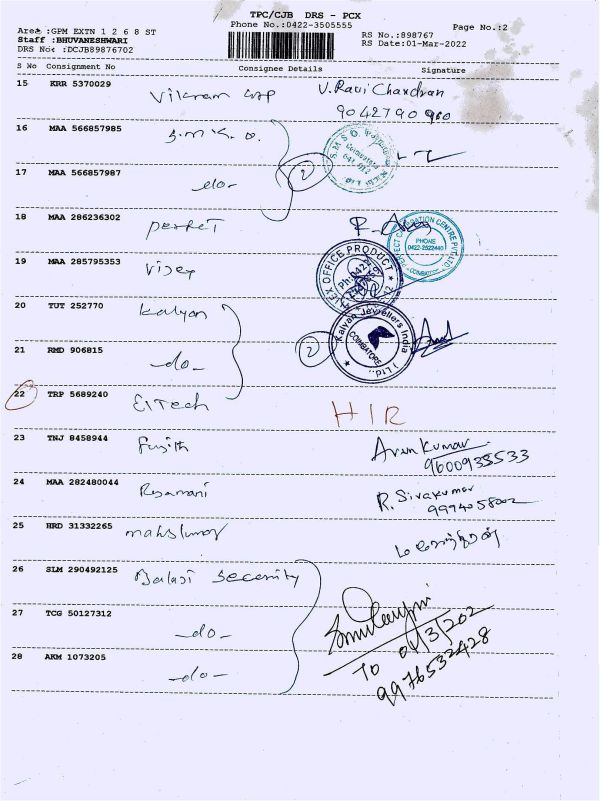 TPC/CJB DRS - PCX
Phone No.:0422-3505555
Page No.:2
Area :GPM EXTN 1 2 6 8 ST
Staff :BHUVANESHWARI
DRS No: :DCJB89876702
RS No.:898767
RS Date:01-Mar-2022
S No Consignment No Consignee Details Signature
15 KRR 5370029 Vikram V. Ravi Chandran
9042790
16 MAA 566857985 S.M.K.
17 MAA 566857987 -do- 2
18 MAA 286236302 perfect
PHONE
0422-2522440
COIMBATORE
19 MAA 285795353 Vijey
OFFICE PRODUCT
20 TUT 252770 Kalyan
Kalyan Jewellers India
COIMBATORE
21 RMD 906815 -do- 2
22 TRP 5689240 Eltech HIR
23 TNJ 8458944 Arun Kumar
9600935533
24 MAA 282480044 Rajamani R. Sivakumar
25 HRD 31332265
26 SLM 290492125 Balaji Security
27 TCG 50127312 -do-
28 AKM 1073205 -do-
9976532428